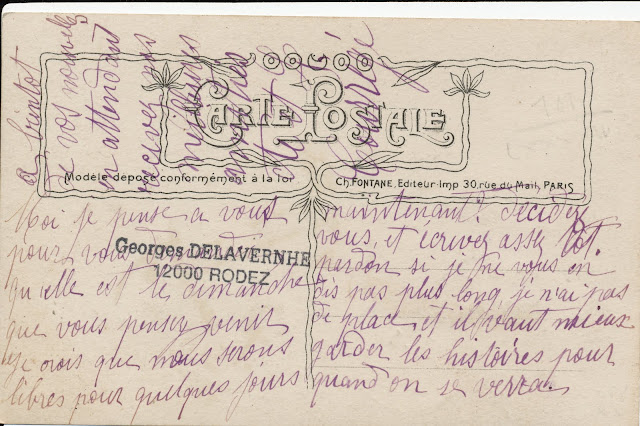 CARTE POSTALE
Modèle déposé conformément à la loi
CH. FONTANE, Editeur-Imp 30, rue du Mail, PARIS
Moi je pense a vous
pour vous
qu'elle est le dimanche
que vous pensez venir
je crois que nous serons
libres pour quelques jours
Georges DELAVERNHE
12000 RODEZ
maintenant: décidez
vous, et écrivez assez tôt.
pardon si je ne vous en
dis pas plus long, je n'ai pas
de place et il vaut mieux
garder les histoires pour
quand on se verra.
a bientot
de vos nouvelles
en attendant
recevez nos
meilleures